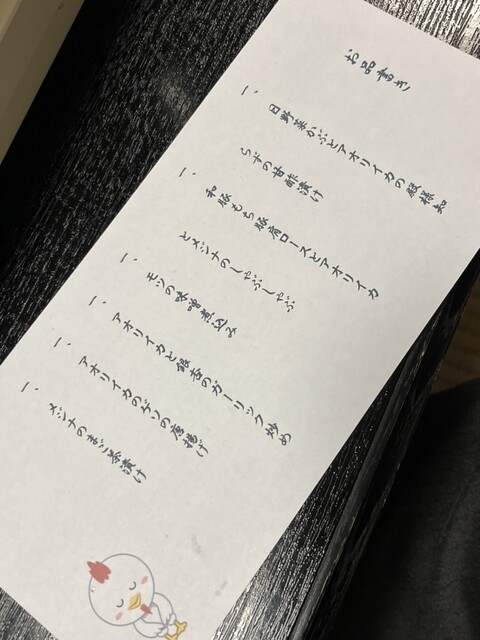 お品書き
一、日野菜かぶとアオリイカの殿様知
らずの甘酢漬け
一、和豚もち豚肩ロースとアオリイカ
とメジナのしゃぶしゃぶ
一、モツの味噌煮込み
一、アオリイカと銀杏のガーリック炒め
一、アオリイカのゲソの唐揚げ
一、メジナのまご茶漬け